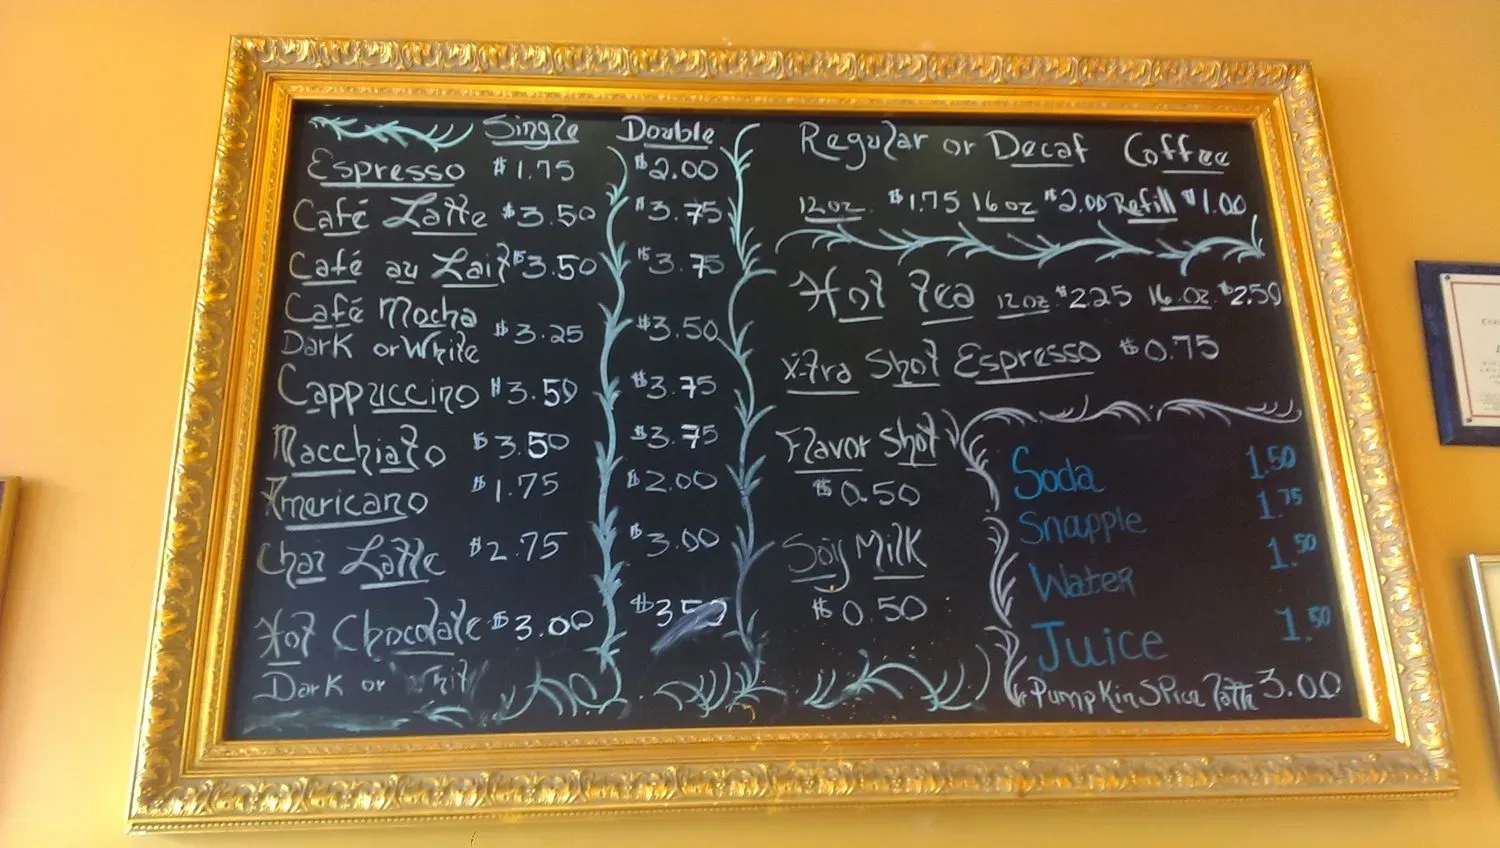 Single Double
Espresso $1.75 $2.00
Café Latte $3.50 $3.75
Café au Lait $3.50 $3.75
Café Mocha
Dark or White $3.25 $3.50
Cappuccino $3.50 $3.75
Macchiato $3.50 $3.75
Americano $1.75 $2.00
Chai Latte $2.75 $3.00
Hot Chocolate $3.00 $3.50
Dark or Whit
Regular or Decaf Coffee
12oz. $1.75 16oz $2.00 Refill $1.00
Hot Tea 12oz $2.25 16.oz. $2.50
X-tra Shot Espresso $0.75
Flavor Shot
$0.50
Soy Milk
$0.50
Soda 1.50
Snapple 1.75
Water 1.50
Juice 1.50
Pumpkin Spice Latte 3.00